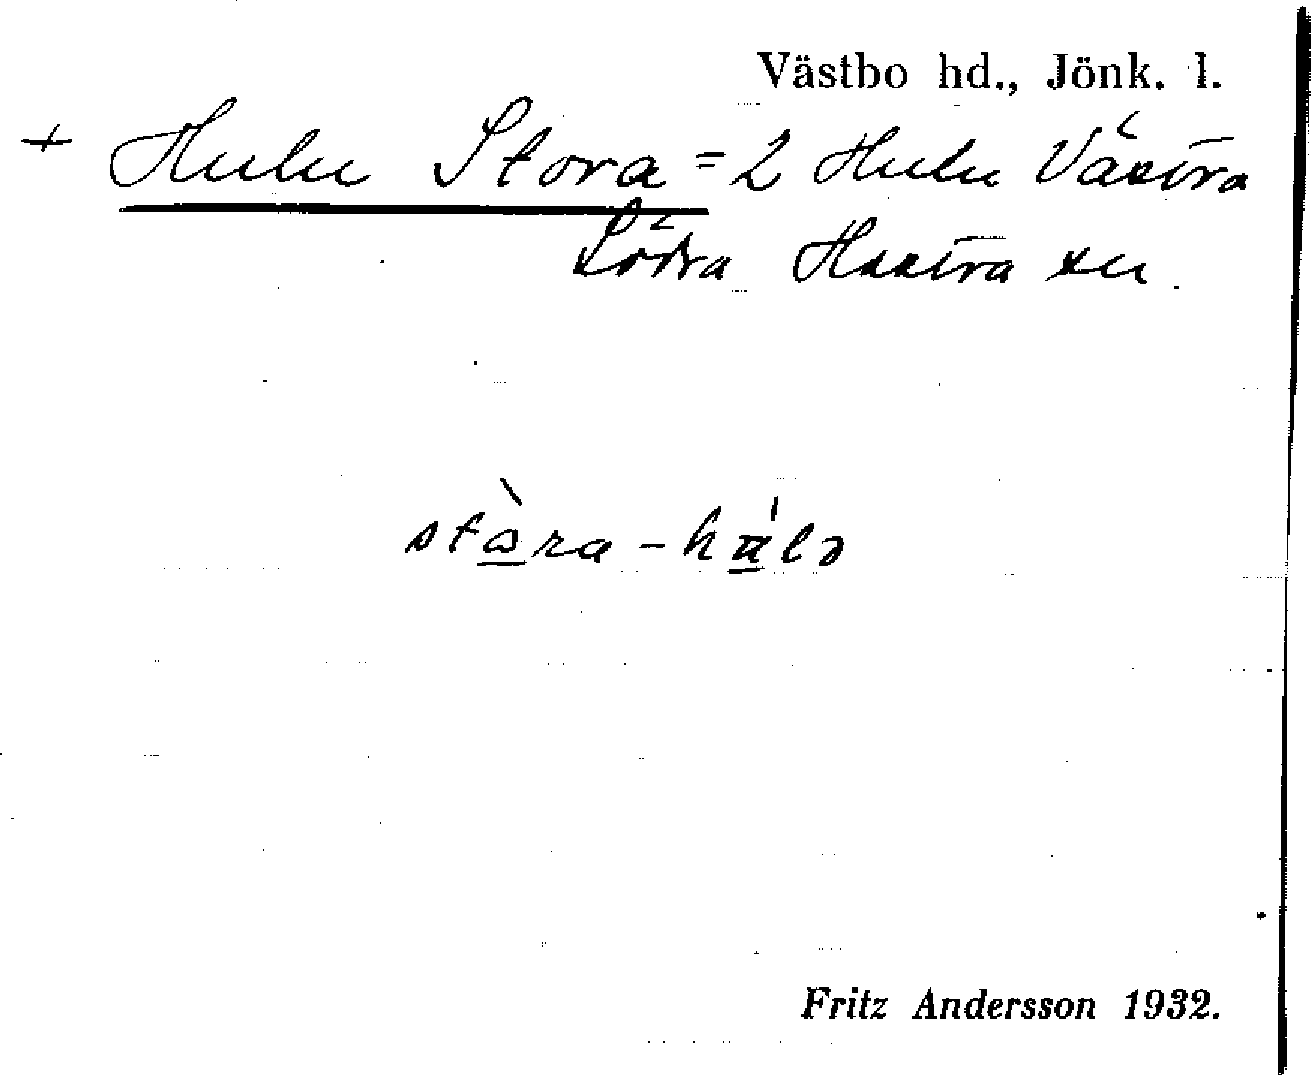 Västbo hd., Jönk. l.
+ Hulu Stora = 2 Hulu Västra
Södra Hestra sn
stòra-hùlə
Fritz Andersson 1932.